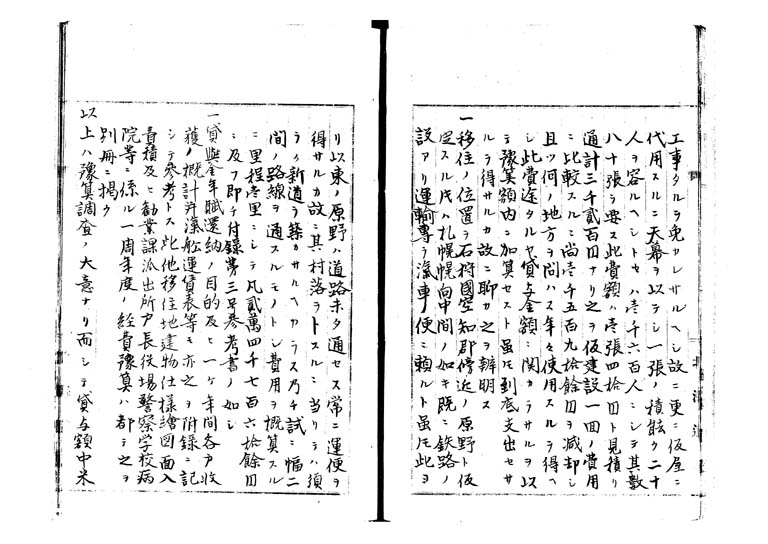 工事タルヲ免カレサルヘシ故ニ更ニ仮屋ニ
代用スルニ天幕ヲ以テシ一張ノ積能ク二十
人ヲ容ルヘシトセハ壱千六百人ニシテ其数
八十張ヲ要ス此費額ハ壱張四拾円ト見積リ
通計三千貳百円ナリ之ヲ仮建設一回ノ費用
ニ比較スルニ尚壱千五百九拾餘円ヲ減却シ
且ツ何ノ地方ヲ問ハス年々使用スルヲ得ヘ
シ此費途タルヤ貸与金額ニ関カラサルヲ以
テ豫算額内ニ加算セスト虽モ到底支出セサ
ルヲ得サルカ故ニ聊カ之ヲ辨明ス
一移住ノ位置ヲ石狩國空知郡傍近ノ原野ト仮
定スル片ハ札幌幌向中間ノ如キ既ニ鉄路ノ
設アリ運輸専ラ滊車ノ便ニ頼ルト虽モ此ヨ
リ以東ノ原野ハ道路未タ通セス常ニ運便ヲ
得サルカ故ニ其村落ヲトスルニ当リテハ須
ラク新道ヲ築カサルヘカラス乃チ試ニ幅二
間ノ路線ヲ通スルモノトシ費用ヲ概算スル
ニ里程壱里ニシテ凡貳萬四千七百六拾餘円
ニ及フ即チ付録第三号参考書ノ如シ
一貸與金年賦還納ノ目的及ヒ一ケ年間各戸収
穫ノ概計并滊舩運賃表等モ亦之ヲ附録ニ記
シテ参考トス此他移住地建物仕様繪図面入
費積及ヒ勧業課派出所戸長役場警察学校病
院等ニ係ル一周年度ノ経費豫算ハ都テ之ヲ
別冊ニ掲ク
以上ハ豫算調査ノ大意ナリ而シテ貸与額中米
北海道